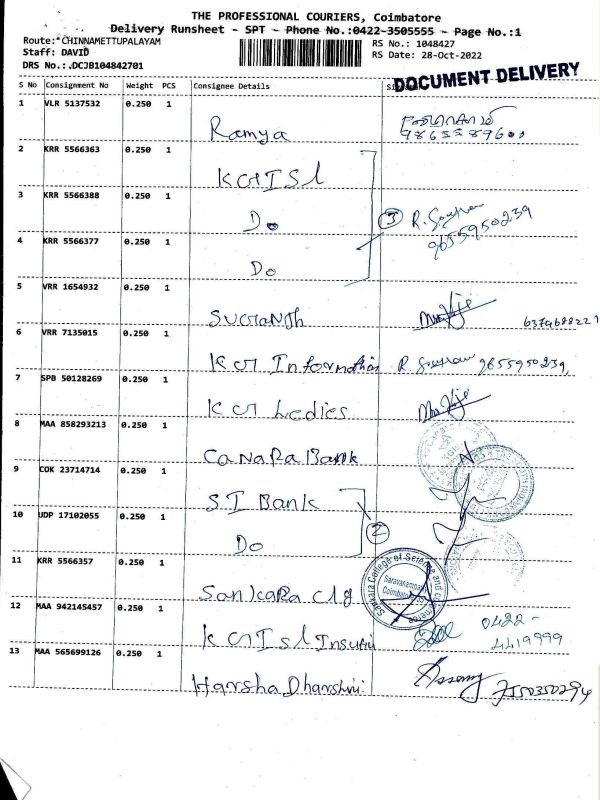 THE PROFESSIONAL COURIERS, Coimbatore
Delivery Runsheet - SPT - Phone No.:0422-3505555 - Page No.:1
Route: CHINNAMETTUPALAYAM
RS No.: 1048427
Staff: DAVID
RS Date: 28-Oct-2022
DRS No.: .DCJB104842701
DOCUMENT DELIVERY
S No Consignment No Weight PCS Consignee Details
1 VLR 5137532 0.250 1
Ramya
2 KRR 5566363 0.250 1
KGISl
3 KRR 5566388 0.250 1
Do 3 R. 9655950239
4 KRR 5566377 0.250 1
Do
5 VRR 1654932 0.250 1
SUGANth
6 VRR 7135015 1 0.250 1
KG Information R. 9655950239
7 SPB 50128269 0.250 1
KG Ladies
8 MAA 858293213 0.250 1
CANARA Bank
9 COK 23714714 0.250 1
SI Bank
10 UDP 17102055 0.250 1
Do 2
11 KRR 5566357 0.250 1
Sankara Clg
Sankara College of Science and Commerce
Saravanampatti
Coimbatore
12 MAA 942145457 0.250 1
KGISl 0422-
4419999
13 MAA 565699126 0.250 1
Harsha Dharshini